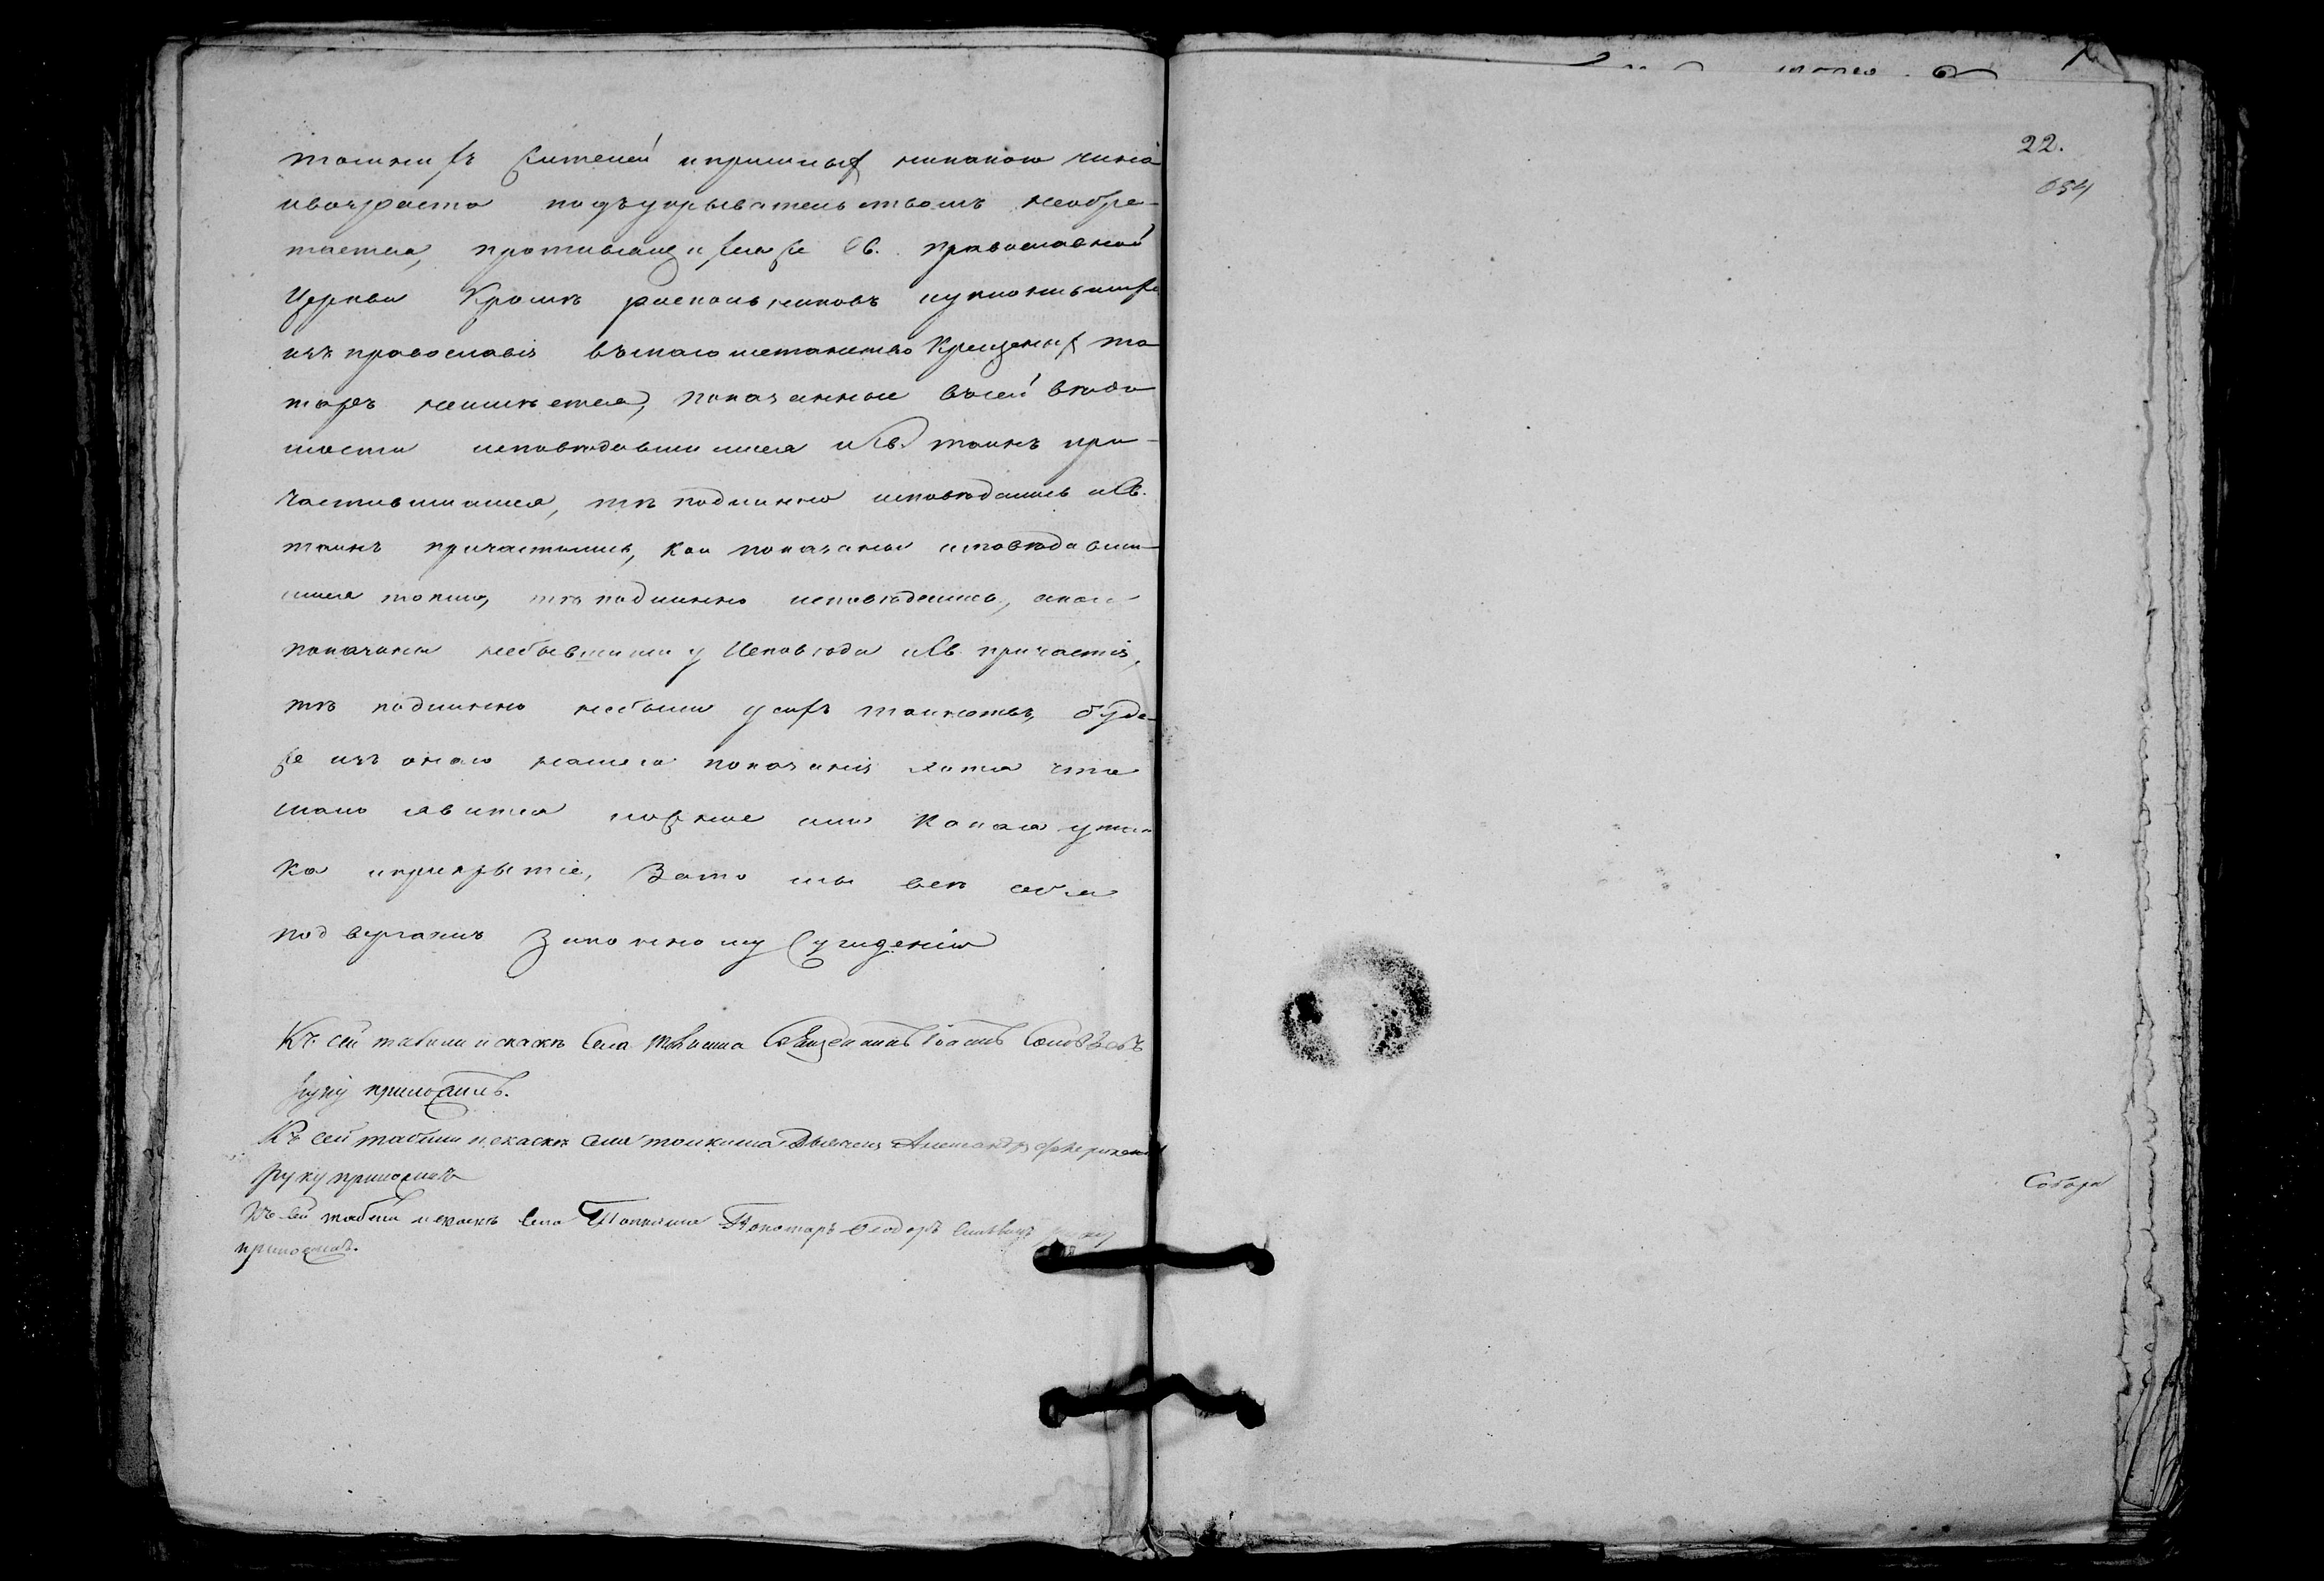 тошнихъ жителей и пришлых никакого чина
ивозраста подъукрывательствомъ необре-
тается, противящихся же Св. православной
Церкви Кромѣ раскольниковъ иуклонившихся
изъ православія въмагометанство Крещеных та
таръ неимѣется, показанные всей вѣдо
мости исповѣдавшимися иСв. таинъ при-
частившимися, тѣ подлинно исповѣдались иСв.
таинъ причастились, кои показаны исповѣдавши-
мися токмо, тѣ подлинно исповѣдались, акои
показаны небывшими у Исповѣди иСв. причастія,
тѣ подлинно небыли усихъ таинствъ, буде
же изъ онаго нашего показанія хотя что
мало явится ложное или Какая утай
ка иприкрытіе, Зато мы всѣ себя
подвергаемъ Законному Сужденію
Къ сей табели и сказкѣ Села Священникъ Іоаннъ Соловьевъ
руку приложилъ.
Къ сей табели искаскѣ села толкиша Дьячекъ Александръ
руку приложилъ
Къ сей табели искаскѣ села Толкиша Пономарь Феодоръ руку
приложилъ.
22.
654
Собора